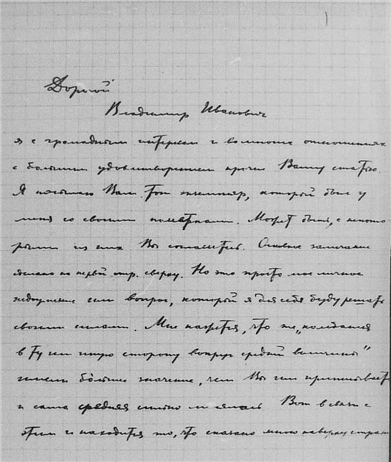 Дорогой
Владимир Иванович
я с громадным интересом и во многих отношениях
с большим удовлетворением прочел Вашу статью.
Я посылаю Вам тот экземпляр, который был у
меня со своими пометками. Может быть, с некото
рыми из них Вы согласитесь. Главное замечание
на первой стр. сверху. Но это просто мое личное
недоумение или вопрос, который я для себя буду решать
своими силами. Мне кажется, что же „колебания
в ту или иную сторону вокруг средней величины"
имели большее значение, чем Вы им приписываете
и сама средняя Вот в связи с
этим и находится то, что сказано мною наверху страни